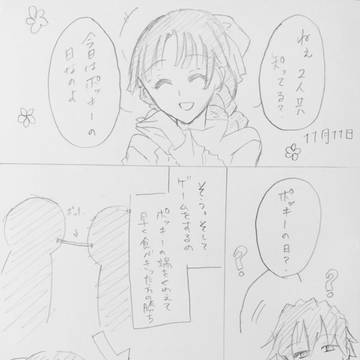 ねえ 2人共
知ってる?
今日はポッキーの
日なのよ
11月11日
ポッキーの日?
?
?
そう。そして
ゲームをするの
ポッキーの端をくわえて
早く食べきった方の勝ち